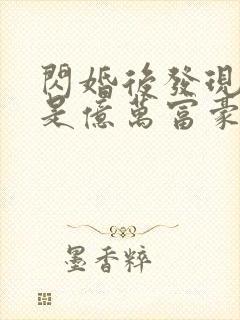 閃婚後發現
是億萬富豪
墨香粹